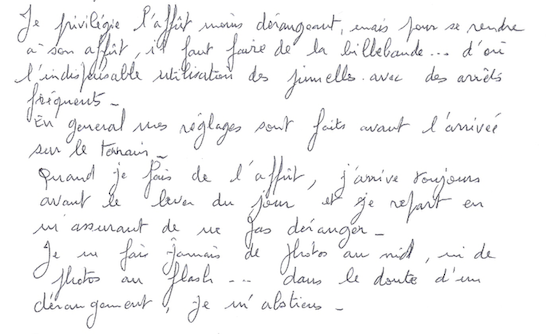 Je privilégie l'affût moins dérangeant, mais pour se rendre
à son affût, il faut faire de la billebaude... d'où
l'indispensable utilisation des jumelles avec des arrêts
fréquents -
En general mes réglages sont faits avant l'arrivée
sur le terrain -
Quand je fais de l'affût, j'arrive toujours
avant le lever du jour et je repart en
m'assurant de ne pas déranger -
Je ne fais jamais de photos au nid, ni de
photos au flash ... dans le doute d'un
dérangement, je m'abstiens -